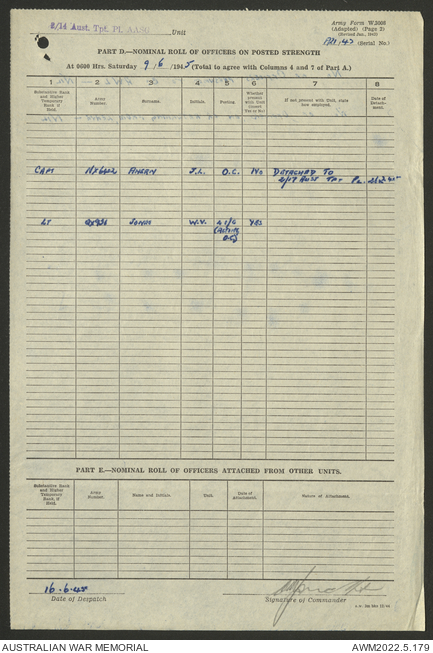 2/14 Aust. Tpt. Pl. AASC Unit
Army Form W.3008
(Adapted) (Page 2)
(Serial No.)
PART D.—NOMINAL ROLL OF OFFICERS ON POSTED STRENGTH
At 0600 Hrs. Saturday 9/6/1945 (Total to agree with Columns 4 and 7 of Part A.)
1 2 3 4 5 6 7 8
Substantive Rank and Higher Temporary Rank if Held.
Army Number.
Surname.
Initials.
Posting.
Whether present with Unit (Insert Yes or No)
If not present with Unit, state how employed.
Date of Detachment.
CAPT AHERN J.L. O.C. No DETACHED TO
2/17 AUST TPT
LT JONES W.V. 2 i/c YES
(Acting
O.C)
PART E.—NOMINAL ROLL OF OFFICERS ATTACHED FROM OTHER UNITS.
Substantive Rank and Higher Temporary Rank, if Held.
Army Number.
Name and Initials.
Unit.
Date of Attachment.
Nature of Attachment.
16.6.45
Date of Despatch
Signature of Commander
AUSTRALIAN WAR MEMORIAL
AWM2022.5.179